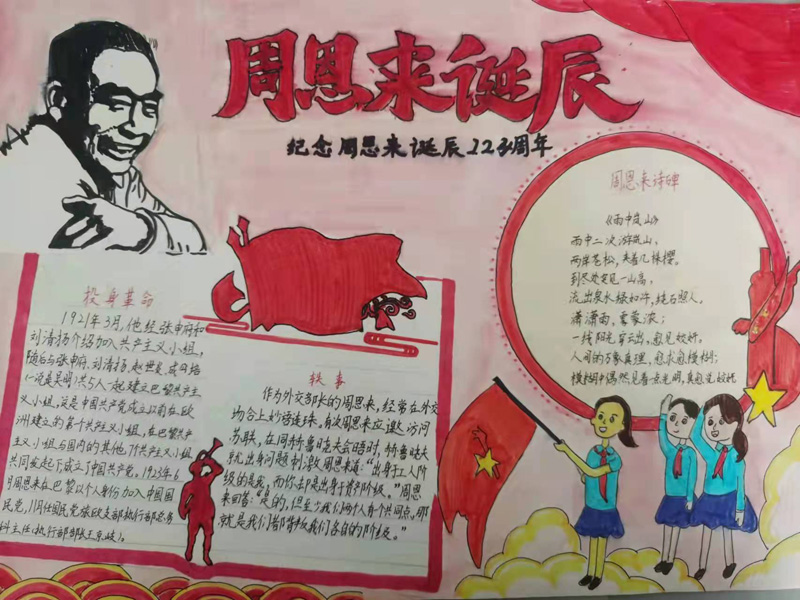 周恩来诞辰
纪念周恩来诞辰123周年
周恩来诗碑
《雨中岚山》
雨中二次游岚山,
两岸苍松,夹着几株樱。
到尽处突见一山高,
流出泉水绿如许,绕石照人。
潇潇雨,雾蒙浓;
一线阳光穿云出,愈见姣妍。
人间的万象真理,愈求愈模糊;
模糊中偶然见着一点光明,真愈觉姣妍
投身革命
1921年3月,他经张申府和
刘清扬介绍加入共产主义小组,
随后与张申府、刘清扬、赵世炎、
(一说是吴明)共5人一起建立巴黎共产主
义小组,这是中国共产党成立以前在欧
洲建立的第一个共产主义小组,在巴黎共产
主义小组与国内的其他7个共产主义小组
共同发起了成立了中国共产党。1923年6
月周恩来在巴黎以个人身份加入中国国
民党,任国民党旅欧支部执行部总务
科主任(执行部部长王京岐)。
轶事
作为外交部长的周恩来,经常在外交
场合上妙语连珠。有次周恩来应邀访问
苏联,在同赫鲁晓夫会晤时,赫鲁晓夫
就出身问题刺激周恩来道:“出身于工人阶
级的是我,而你却是出身于资产阶级。”周恩
来回答:“是的,但至少我们两个人有个共同点,那
就是我们都背叛了我们各自的阶级。”